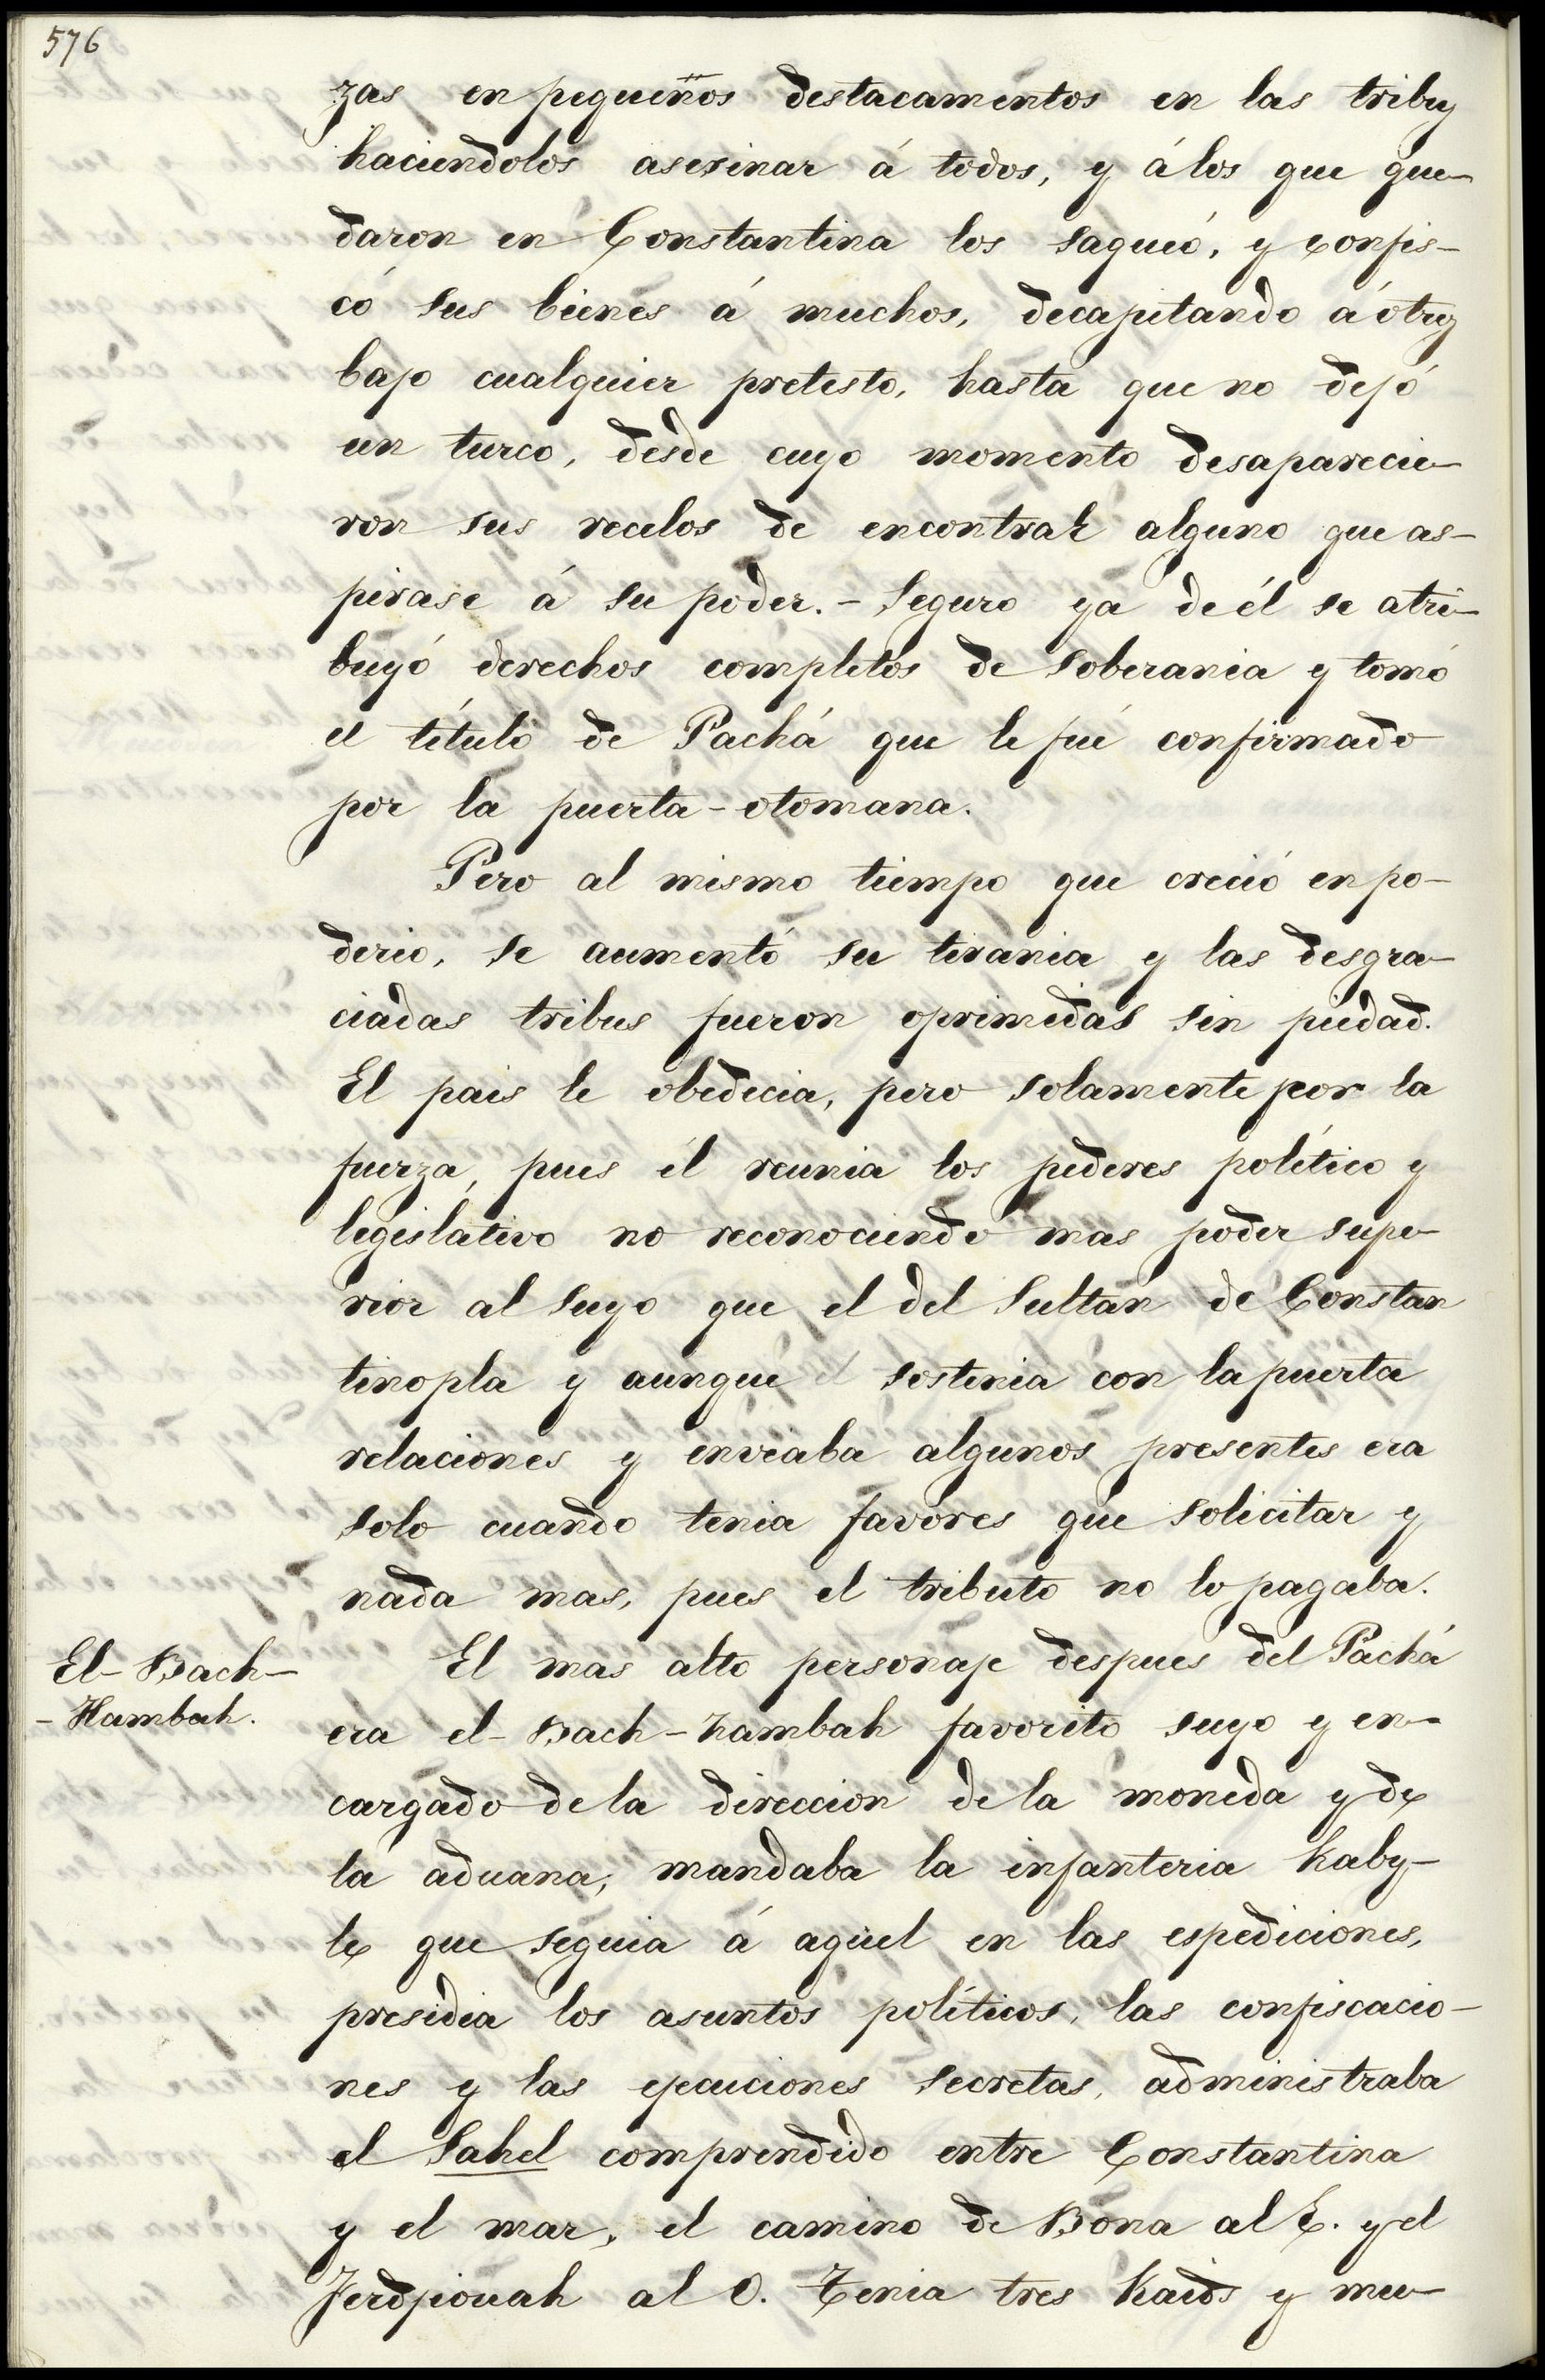 576
zas en pequeños destacamentos en las tribus
haciendolos asesinar á todos, y á los que que-
daron en Constantina los saqueó, y confis-
có sus bienes á muchos, decapitando á otros
bajo cualquier pretesto, hasta que no dejó
un turco, desde cuyo momento desaparecie-
ron sus recelos de encontrar alguno que as-
pirase á su poder.- Seguro ya de él se atri-
buyó derechos completos de soberania y tomó
el título de Pachá que le fué confirmado
por la puerta-otomana.
Pero al mismo tiempo que creció en po-
derio, se aumentó su tirania y las desgra-
ciadas tribus fueron oprimidas sin piedad.
El pais le obedecia, pero solamente por la
fuerza, pues él reunia los poderes político y
legislativo no reconociendo mas poder supe-
rior al suyo que el del Sultan de Constan
tinopla y aunque sostenia con la puerta
relaciones y enviaba algunos presentes era
solo cuando tenia favores que solicitar y
nada mas, pues el tributo no lo pagaba.
El-Bach-
-Hambah.
El mas alto personaje despues del Pachá
era el-Bach-hambah favorito suyo y en-
cargado de la direccion de la moneda y de
la aduana, mandaba la infanteria Kaby-
le que seguia á aquel en las espediciones,
presidia los asuntos políticos, las confiscacio-
nes y las ejecuciones secretas, administraba
el Sahel comprendido entre Constantina
y el mar, el camino de Bona al E. y el
Ferdjiouah al O. Tenia tres Kaids y mu-